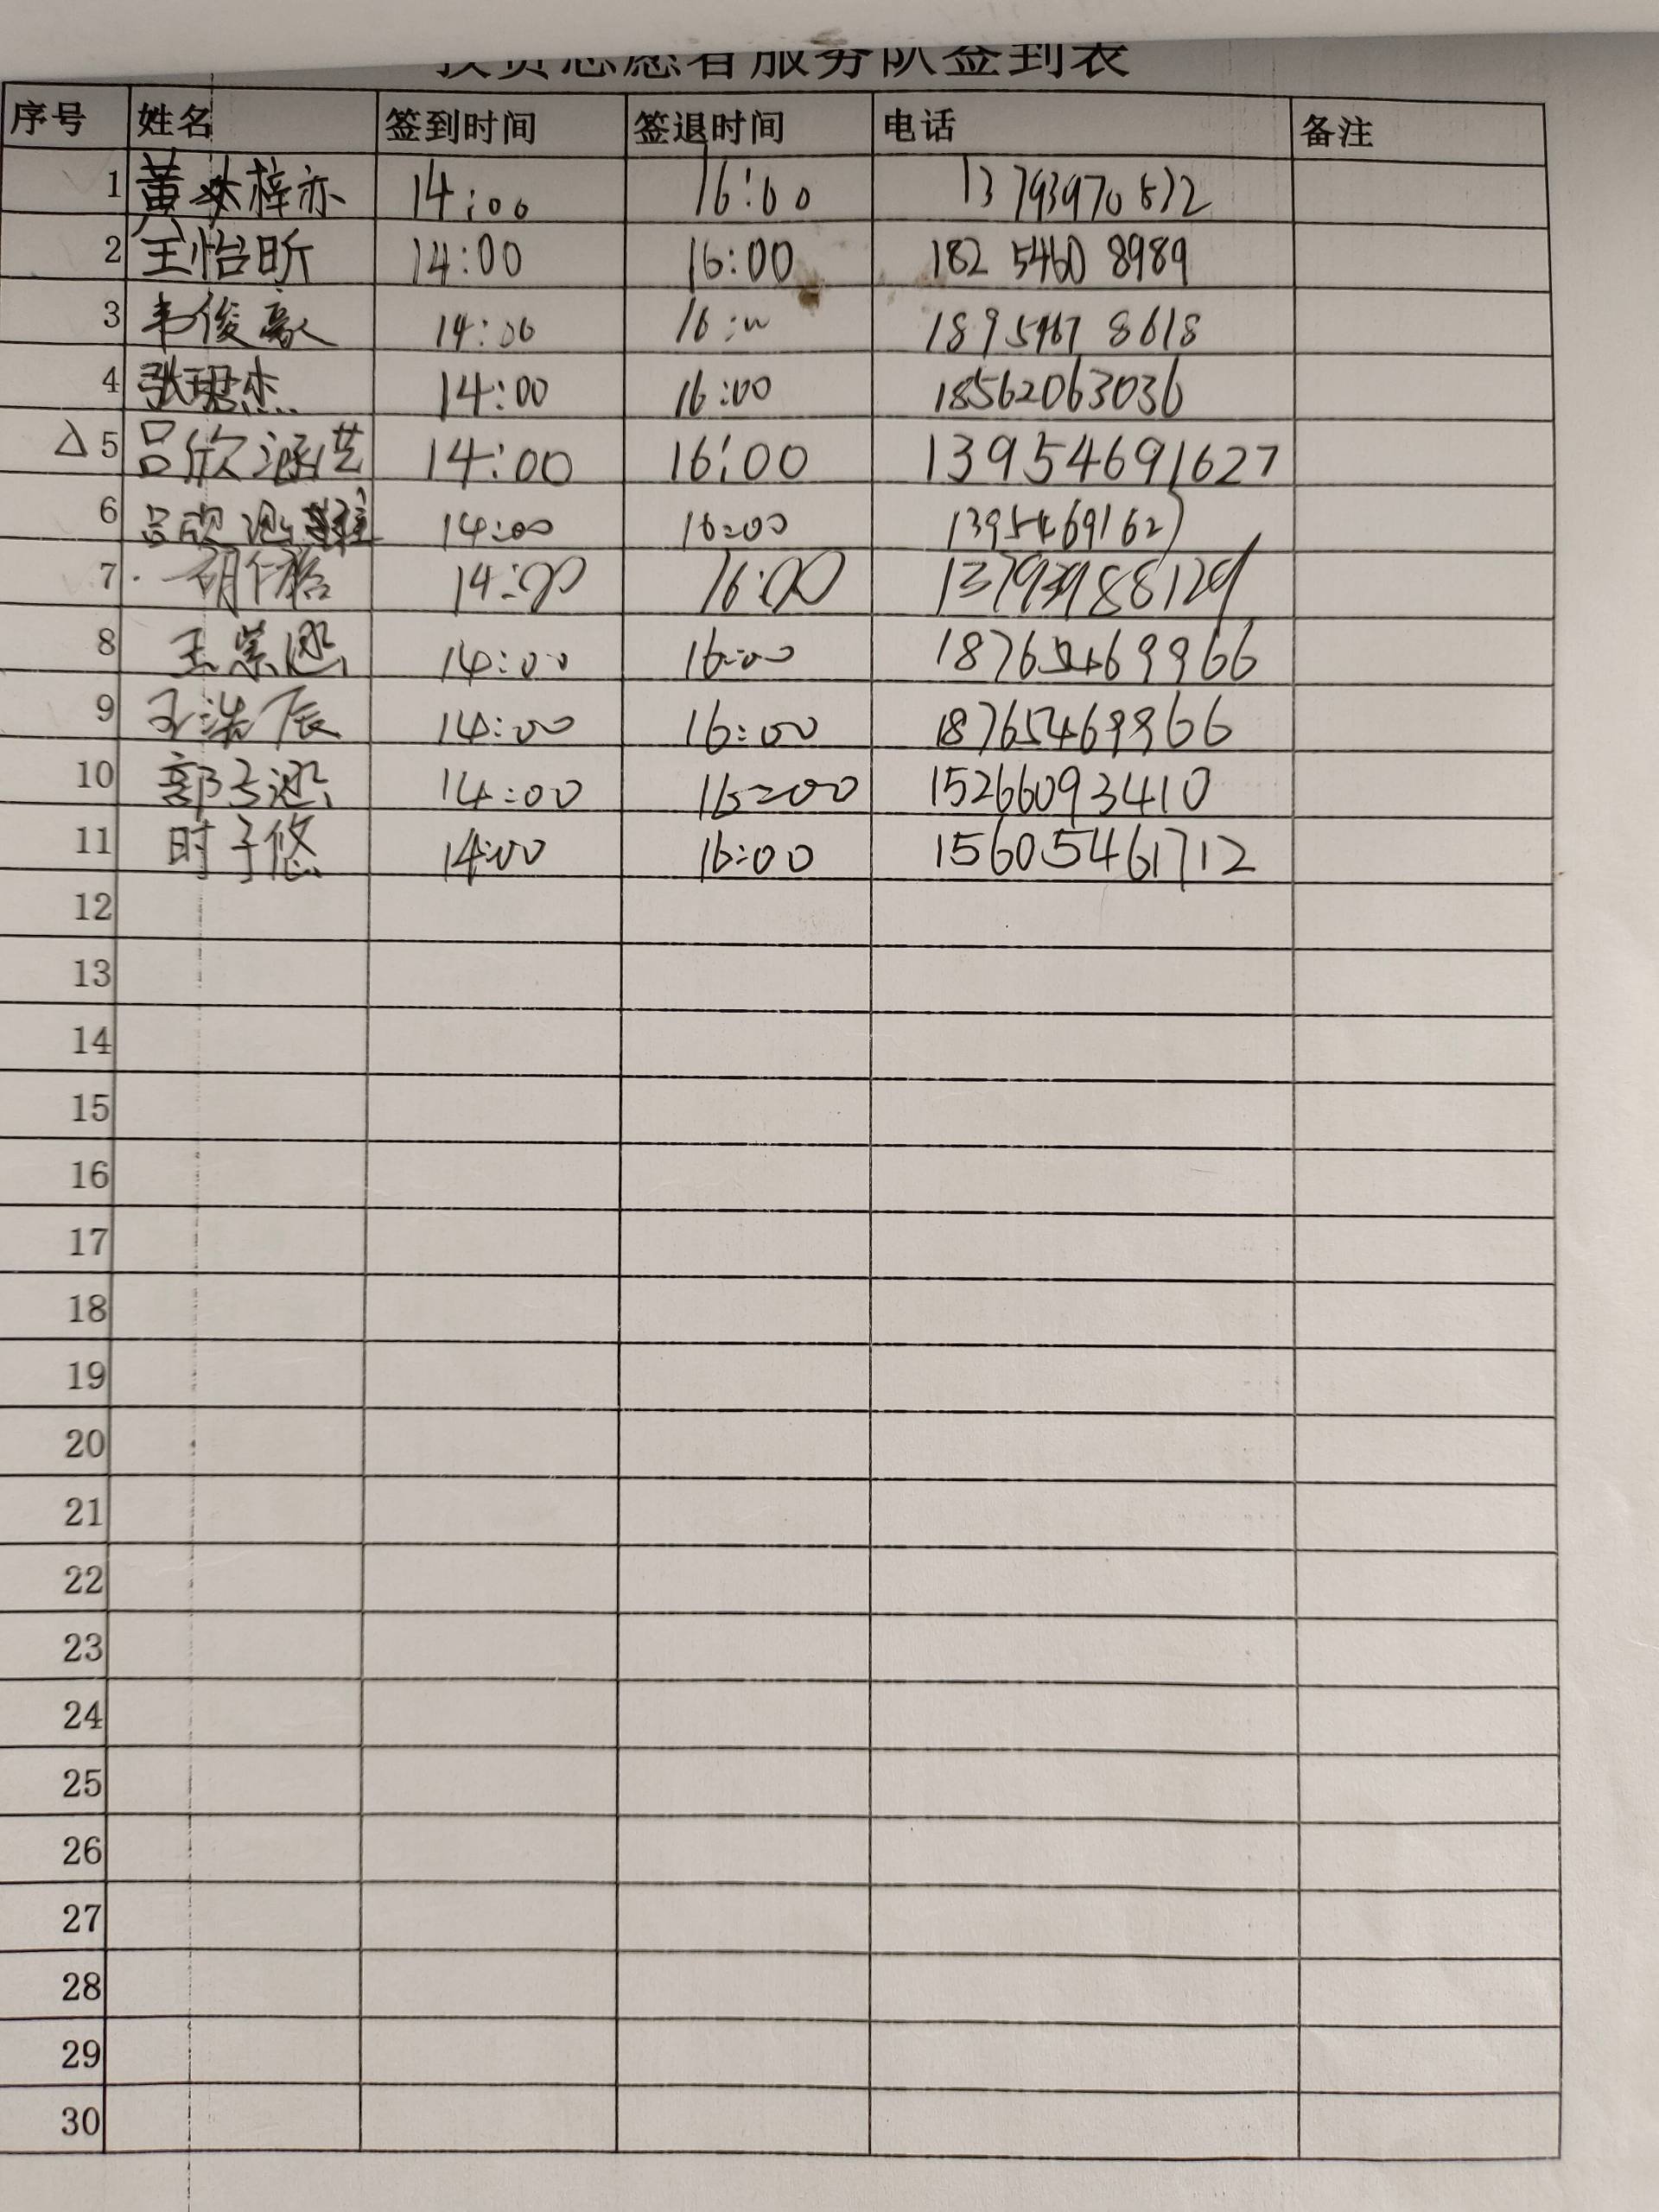 志愿者服务队签到表
序号 姓名 签到时间 签退时间 电话 备注
1 黄梓亦 14:00 16:00 13793970832
2 王怡昕 14:00 16:00 182 5460 8989
3 韦俊豪 14:00 16:00 189 5467 8618
4 张珺杰 14:00 16:00 18562063036
△ 5 吕欣涵艺 14:00 16:00 13954691627
6 吕欣 14:00 16:00 13954691627
7 胡 14:00 16:00 13793988129
8 王崇 14:00 16:00 18765469966
9 王浩辰 14:00 16:00 18765469966
10 郭子 14:00 16:00 15266093410
11 时子悠 14:00 16:00 15605461712
12
13
14
15
16
17
18
19
20
21
22
23
24
25
26
27
28
29
30